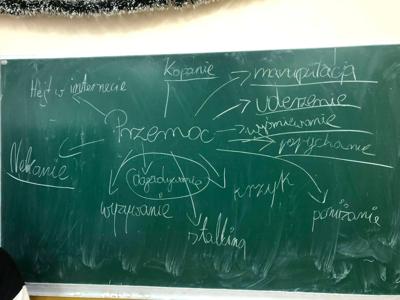 Kopanie
manipulacja
Hejt w internecie
uderzenie
Przemoc
wyśmiewanie
popychanie
Nękanie
Krzyk
wyzywanie
poniżanie
stalking